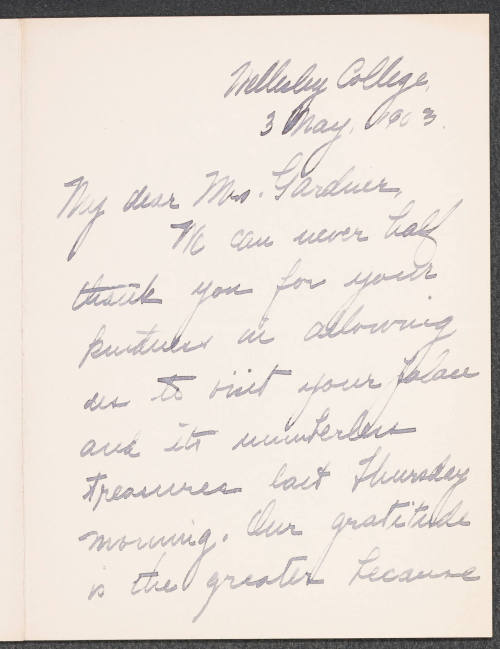 Wellesley College,
3 May, 1903.
My dear Mrs. Gardner,
We can never half
thank you for your
kindness in allowing
us to visit your palace
and its numberless
treasures last Thursday
morning. Our gratitude
is the greater because